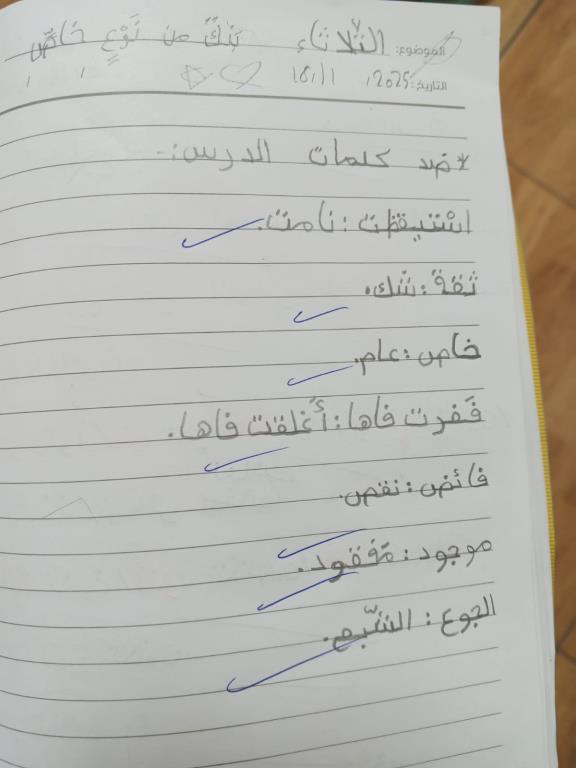 الموضوع: الثّلاثاء بَنْكٌ من نَوْعٍ خَاصٍّ
التاريخ: 2025/ 11/ 18
* ضد كلمات الدرس:-
اسْتيقظت: نامت.
ثقة: شك.
خاص: عام.
فَغرت فاها: أَغلقت فاها.
فائض: نقص.
موجود: مَفقود.
الجوع: الشّبع.